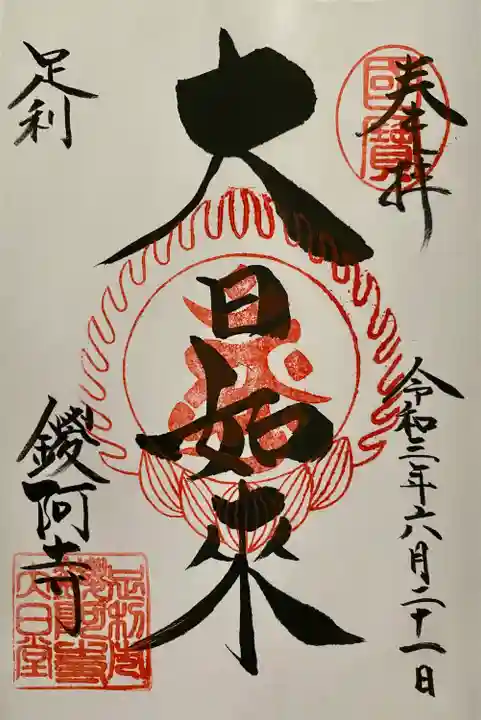 奉拝
國寶
令和三年六月二十一日
大日如来
足利
鑁阿寺
足利山
鑁阿寺
大日堂